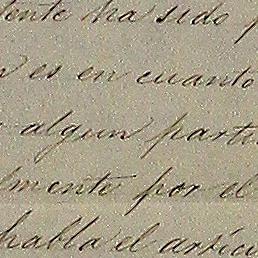 tente ha sido p
n es en cuanto
algun parti
lmente por el
habla el artícu